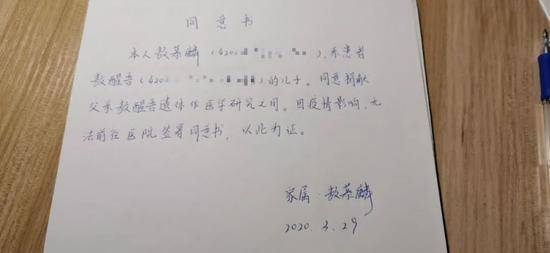 同意书
本人敖慕麟（420），系患者
敖醒吾（420）的儿子。同意捐献
父亲敖醒吾遗体作医学研究之用。因疫情影响，无
法前往医院签署同意书，以此为证。
家属：敖慕麟
2020.3.29